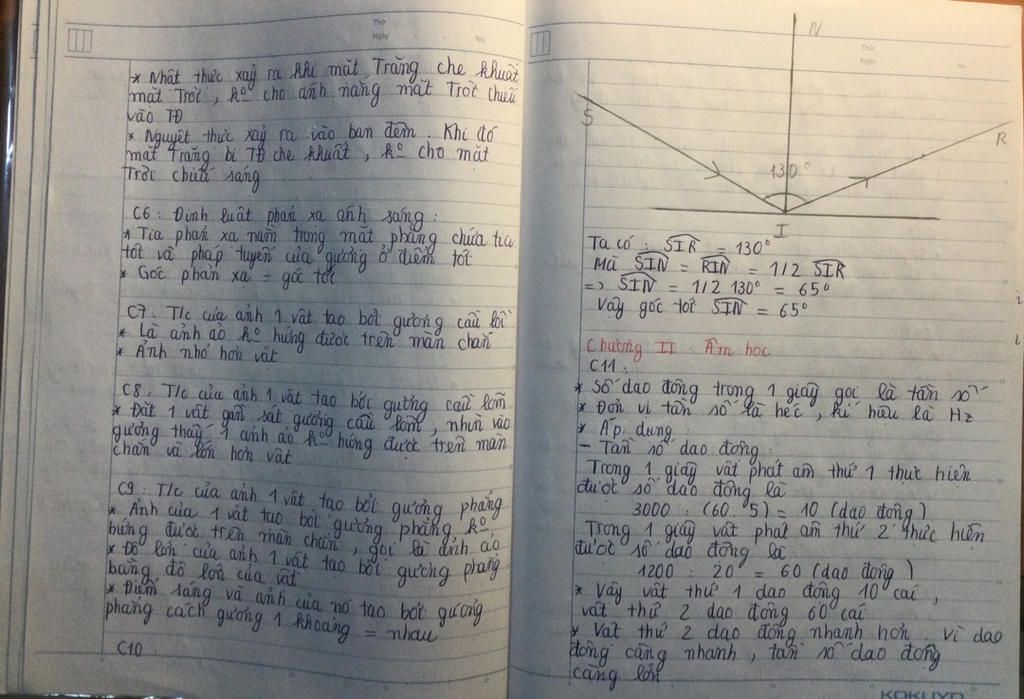 Thứ
Ngày
No.
* Nhật thực xảy ra khi mặt Trăng che khuất
mặt Trời, kº cho ánh nắng mặt Trời chiếu
vào TĐ
* Nguyệt thực xảy ra vào ban đêm. Khi đó
mặt Trăng bị TĐ che khuất, kº cho mặt
Trời chiếu sáng
C6: Định luật phản xạ ánh sáng:
* Tia phản xạ nằm trong mặt phẳng chứa tia
tới và pháp tuyến của gương ở điểm tới
* Góc phản xạ = góc tới
C7: T/c của ảnh 1 vật tạo bởi gương cầu lồi
* Là ảnh ảo kº hứng được trên màn chắn
* Ảnh nhỏ hơn vật
C8: T/c của ảnh 1 vật tạo bởi gương cầu lõm
* Đặt 1 vật gần sát gương cầu lõm, nhìn vào
gương thấy 1 ảnh ảo kº hứng được trên màn
chắn và lớn hơn vật
C9: T/c của ảnh 1 vật tạo bởi gương phẳng
* Ảnh của 1 vật tạo bởi gương phẳng kº
hứng được trên màn chắn, gọi là ảnh ảo
* Độ lớn của ảnh 1 vật tạo bởi gương phẳng
bằng độ lớn của vật
* Điểm sáng và ảnh của nó tạo bởi gương
phẳng cách gương 1 khoảng = nhau
C10:
Thứ
Ngày
No.
N
S
R
130º
I
Ta có: SIR = 130º
Mà SIN = RIN = 1/2 SIR
=> SIN = 1/2 130º = 65º
Vậy góc tới SIN = 65º
Chương II - Âm học
C11:
* Số dao động trong 1 giây gọi là tần số
* Đơn vị tần số là héc, kí hiệu là Hz
* Áp dụng:
- Tần số dao động:
Trong 1 giây vật phát âm thứ 1 thực hiện
được số dao động là:
3000 : (60.5) = 10 (dao động)
Trong 1 giây vật phát âm thứ 2 thực hiện
được số dao động là:
1200 : 20 = 60 (dao động)
* Vậy vật thứ 1 dao động 10 cái,
vật thứ 2 dao động 60 cái
* Vật thứ 2 dao động nhanh hơn. Vì dao
động càng nhanh, tần số dao động
càng lớn
KOKUYO